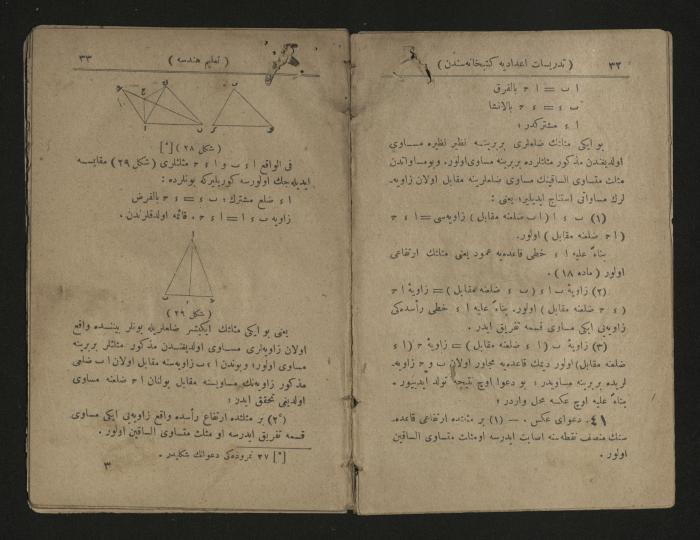 ٣٢
( تدريسات اعداديه كتبخانه‌سندن )
ا ب = ا ح بالفرق
ب ء = ء ح بالانشا
ا ء مشتركدر ؛
بو ايكى مثلثك ضلعلرى بربرينه نظير نظيره مساوى
اولديغندن مذكور مثلثلرده بربرينه مساوى اولور. وبومساواتدن
مثلث متساوى الساقينك مساوى ضلعلرينه مقابل اولان زاويه‌
لرك مساواتى استنتاج ايديلير؛ يعنى :
(١) ب ء ا (ا ب ضلعنه مقابل) زاويه‌سى = ا ء ح
( ا ح ضلعنه مقابل ) اولور.
بناءً عليه ا ء خطى قاعده‌يه عمود يعنى مثلثك ارتفاعى
اولور ( ماده ١٨ ) .
(٢) زاوية ب ا ء ( ب ء ضلعنه مقابل ) = زاوية ا ح
( ء ح ضلعنه مقابل ) اولور. بناءً عليه ا ء خطى رأسده‌كى
زاويه‌يى ايكى مساوى قسمه تفريق ايدر .
(٣) زاوية ب (ا ء ضلعنه مقابل) = زاوية ح (ا ء
ضلعنه مقابل) اولور ديمك قاعده‌يه مجاور اولان ب و ح زاويه‌
لريده بربرينه مساويدر ؛ بو دعوا اوچ نتيجه تولد ايديييور .
بناءً عليه اوچ عكسه محل واردر ؛
٤١. دعواى عكس . — (١) بر مثلثده ارتفاعى قاعده‌
سنك منصف نقطه‌سنه اصابت ايدرسه اومثلث متساوى الساقين
اولور .
( تعليم هندسه )
٣٣
( شكل ٢٨ ) [*]
فى الواقع ا ء ب و ا ء ح مثلثلرى ( شكل ٢٩ ) مقايسه
ايديله‌جك اولورسه كوريليركه بونلرده :
ا ء ضلع مشترك ؛ ب ء = ء ح بالفرض
زاويه ب ء ا = ا ء ح . قائمه اولدقلرندن .
( شكل ٢٩ )
يعنى بو ايكى مثلثك ايكيشر ضلعلريله بونلر بيننده واقع
اولان زاويه‌لرى مساوى اولديغندن مذكور مثلثلر بربرينه
مساوى اولور؛ وبوندن ا ء ب زاويه‌سنه مقابل اولان ا ب ضلعى
مذكور زاويه‌نك مساويسنه مقابل بولنان ا ح ضلعنه مساوى
اولديغى تحقق ايدر :
(٢) بر مثلثده ارتفاع رأسده واقع زاويه‌يى ايكى مساوى
قسمه تفريق ايدرسه او مثلث متساوى الساقين اولور .
[*] ٢٧ نمروده‌كى دعوانك شكليدر .
٣